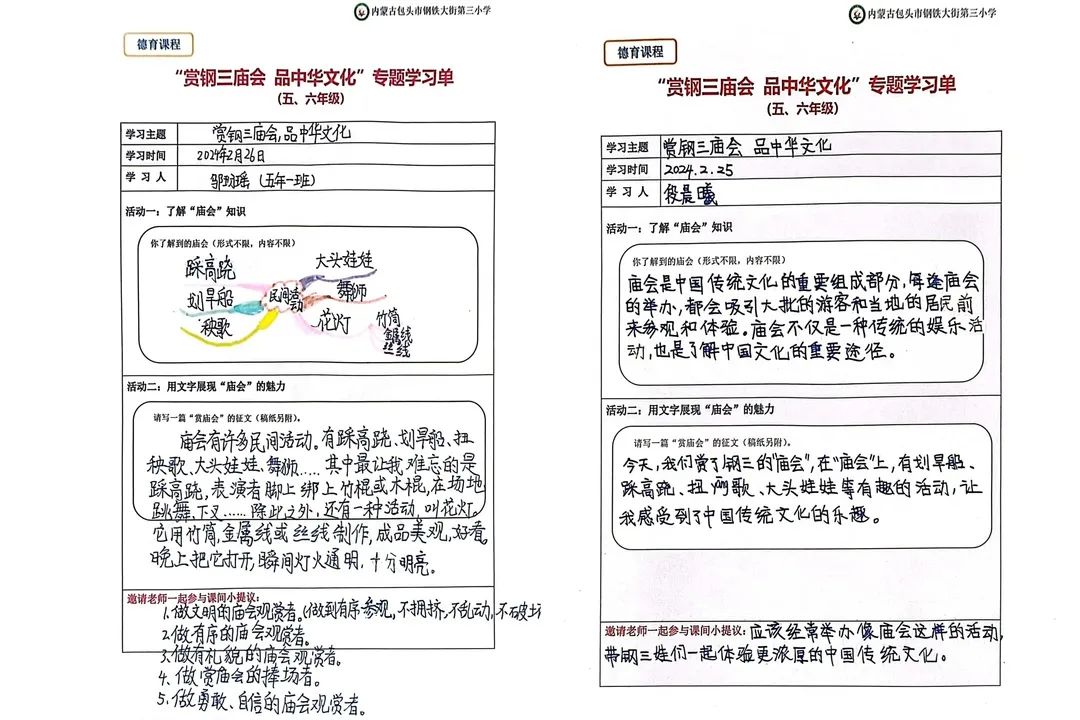 内蒙古包头市钢铁大街第三小学
德育课程
“赏钢三庙会 品中华文化”专题学习单
(五、六年级)
学习主题 赏钢三庙会,品中华文化
学习时间 2024年2月26日
学 习 人 邹玥瑶 (五年一班)
活动一:了解“庙会”知识
你了解到的庙会(形式不限,内容不限)
踩高跷
划旱船
秧歌
民间活动
大头娃娃
舞狮
花灯
竹筒
金属线
丝线
活动二:用文字展现“庙会”的魅力
请写一篇“赏庙会”的征文(稿纸另附)。
庙会有许多民间活动。有踩高跷、划旱船、扭
秧歌、大头娃娃、舞狮……其中最让我难忘的是
踩高跷,表演者脚上绑上竹棍或木棍,在场地
跳舞、下叉……除此之外,还有一种活动,叫花灯。
它用竹筒,金属线或丝线制作,成品美观,好看。
晚上把它打开,瞬间灯火通明,十分明亮。
邀请老师一起参与课间小提议:
1.做文明的庙会观赏者。(做到有序参观,不拥挤,不乱动,不破坏
2.做有序的庙会观赏者。
3.做有礼貌的庙会观赏者。
4.做赏庙会的捧场者。
5.做勇敢、自信的庙会观赏者。
内蒙古包头市钢铁大街第三小学
德育课程
“赏钢三庙会 品中华文化”专题学习单
(五、六年级)
学习主题 赏钢三庙会 品中华文化
学习时间 2024.2.25
学 习 人 段晨曦
活动一:了解“庙会”知识
你了解到的庙会(形式不限,内容不限)
庙会是中国传统文化的重要组成部分,每逢庙会
的举办,都会吸引大批的游客和当地的居民前
来参观和体验。庙会不仅是一种传统的娱乐活
动,也是了解中国文化的重要途径。
活动二:用文字展现“庙会”的魅力
请写一篇“赏庙会”的征文(稿纸另附)。
今天,我们赏了钢三的“庙会”,在“庙会”上,有划旱船、
踩高跷、扭歌、大头娃娃等有趣的活动,让
我感受到了中国传统文化的乐趣。
邀请老师一起参与课间小提议:应该经常举办像庙会这样的活动,
带钢三娃们一起体验更浓厚的中国传统文化。